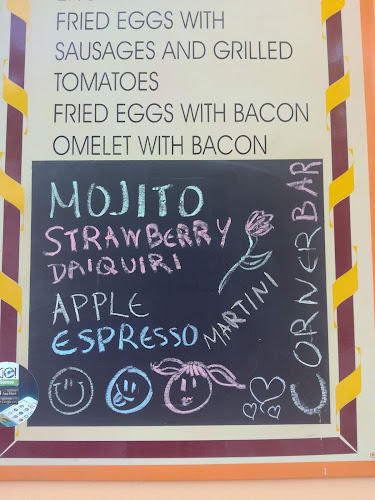 FRIED EGGS WITH
SAUSAGES AND GRILLED
TOMATOES
FRIED EGGS WITH BACON
OMELET WITH BACON
MOJITO
STRAWBERRY
DAIQUIRI
APPLE
ESPRESSO MARTINI
CORNER BAR